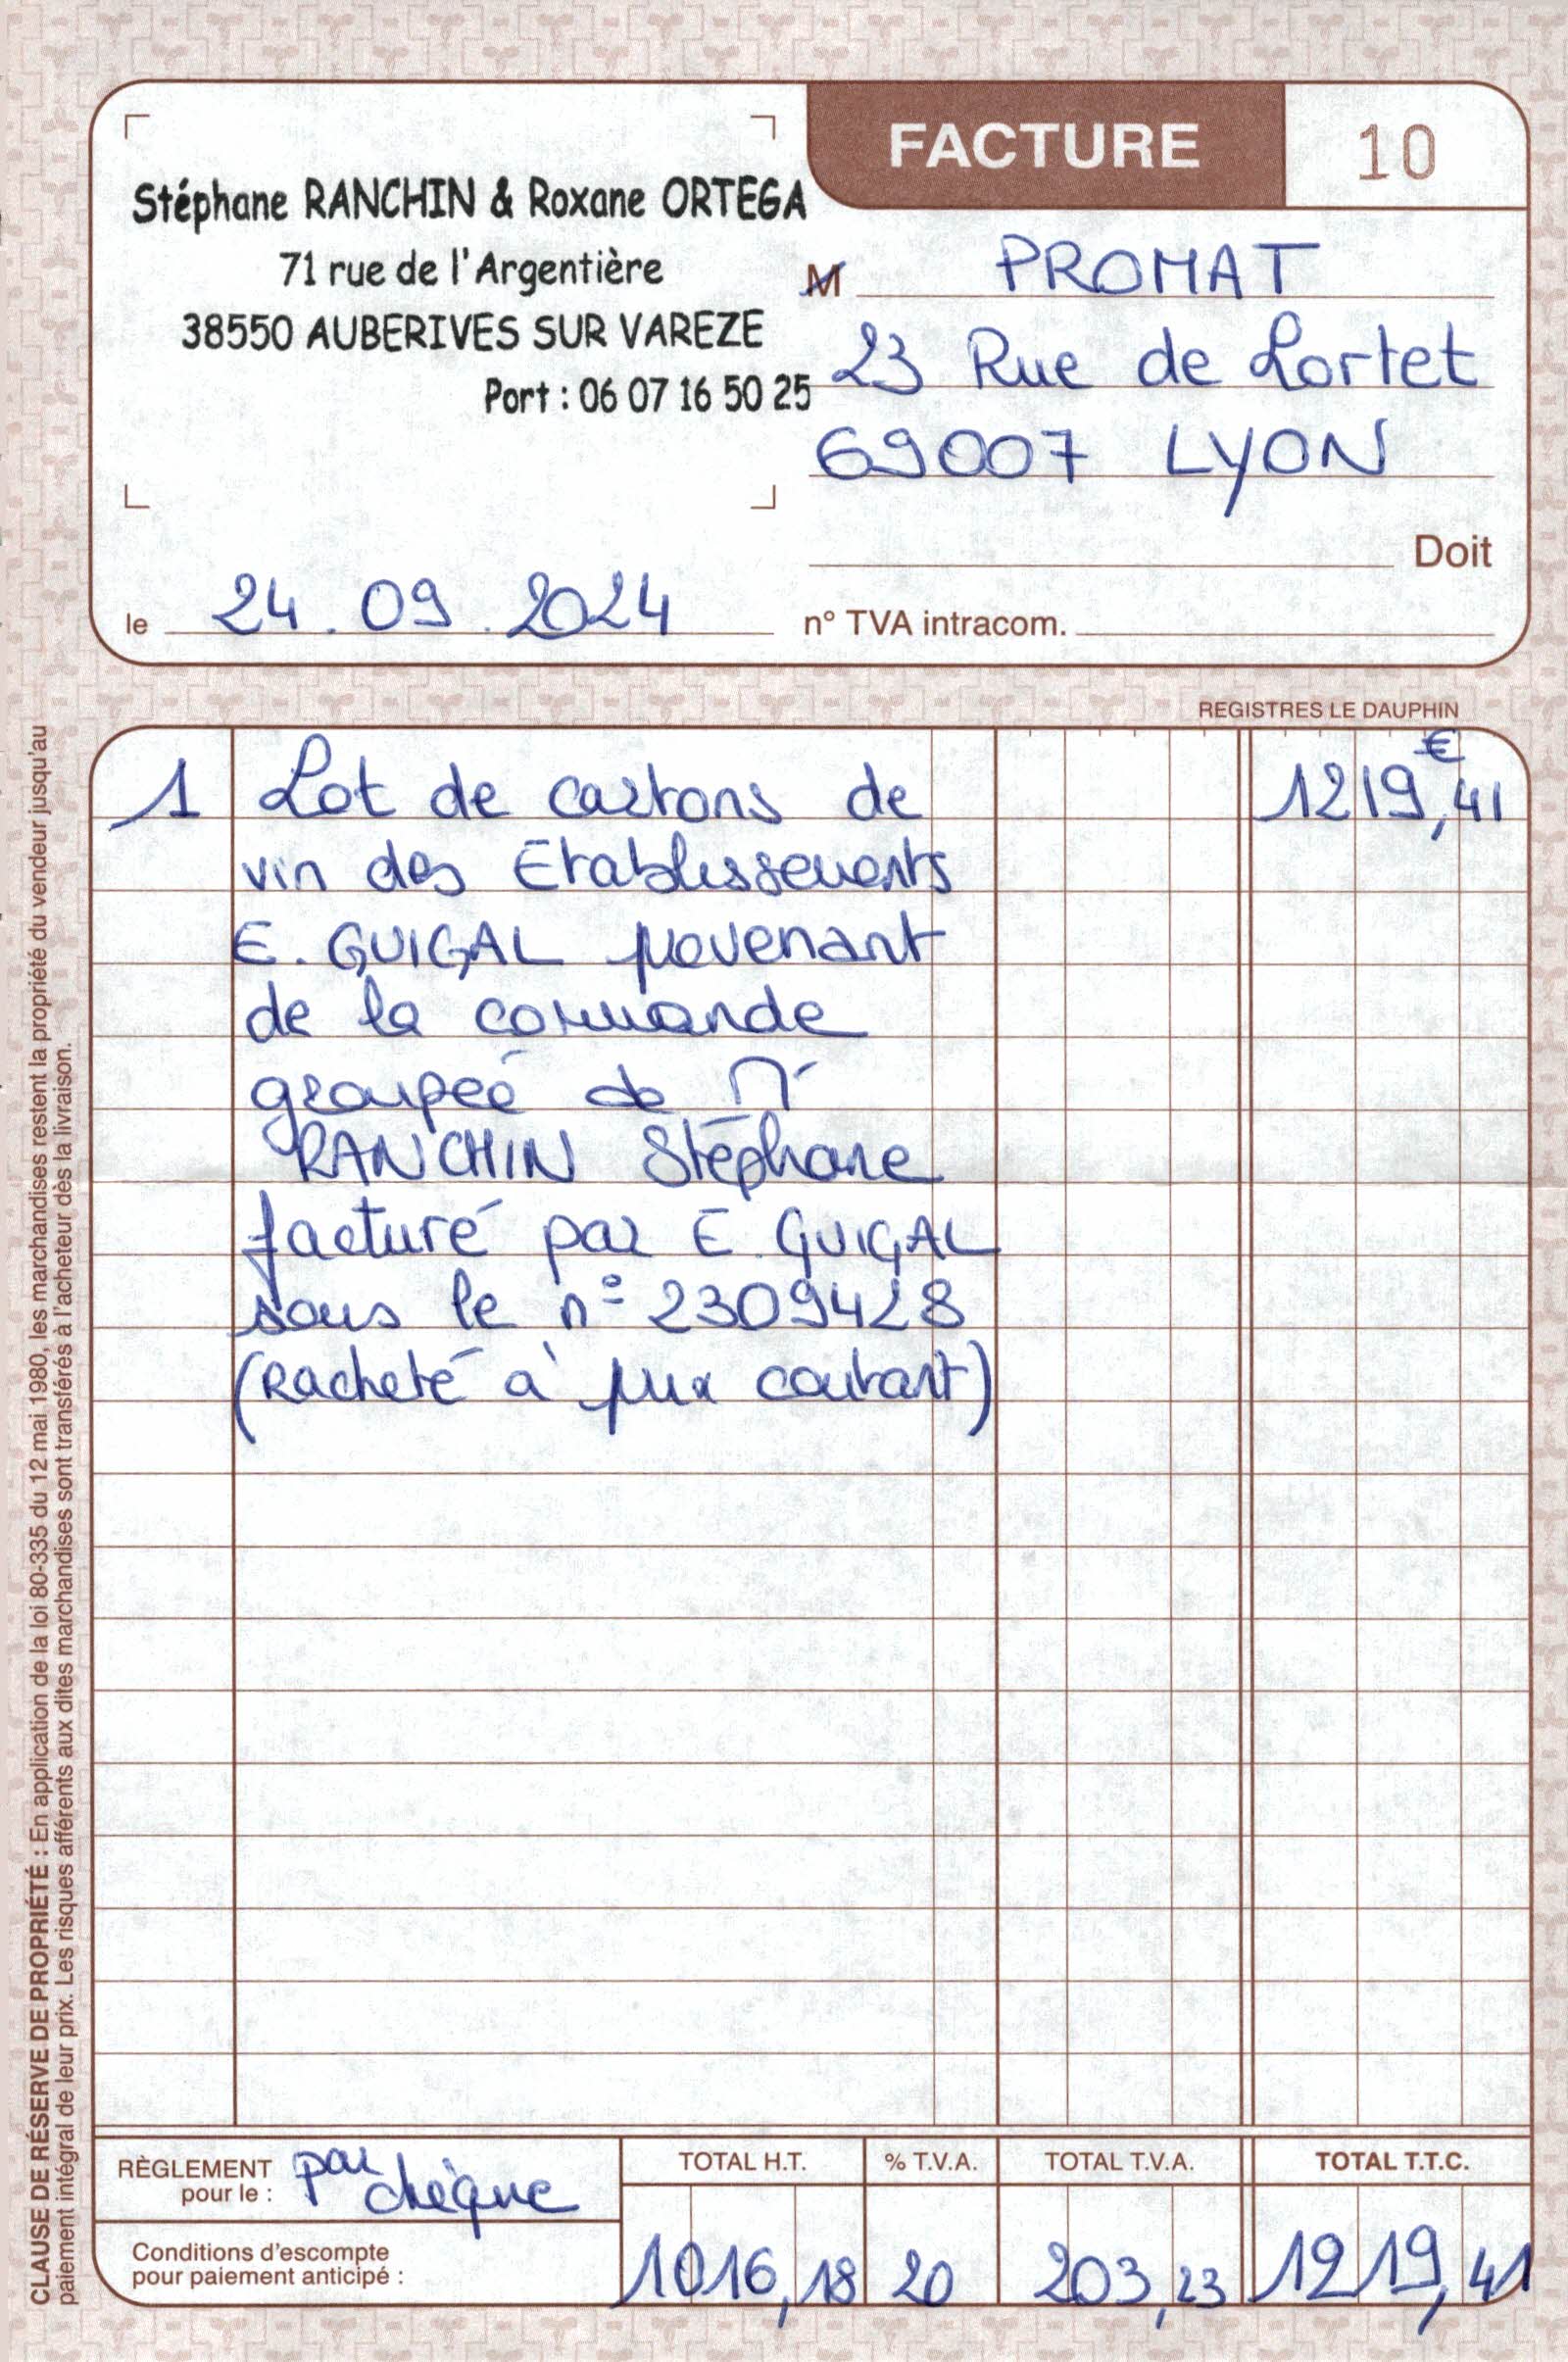 FACTURE 10
Stéphane RANCHIN & Roxane ORTEGA
71 rue de l'Argentière
38550 AUBERIVES SUR VAREZE
Port : 06 07 16 50 25
M PROMAT
23 Rue de Lortet
69007 LYON
Doit
le 24.09.2024
n° TVA intracom.
REGISTRES LE DAUPHIN
€
1 Lot de cartons de 1219,41
vin des Etablissements
E. GUIGAL provenant
de la commande
groupée de Mr
RANCHIN Stéphane
facturé par E. GUIGAL
sous le n° 2309428
(Racheté à prix coutant)
RÈGLEMENT
pour le :
par
chèque
Conditions d'escompte
pour paiement anticipé :
TOTAL H.T. % T.V.A. TOTAL T.V.A. TOTAL T.T.C.
1016,18 20 203,23 1219,41
CLAUSE DE RÉSERVE DE PROPRIÉTÉ : En application de la loi 80-335 du 12 mai 1980, les marchandises restent la propriété du vendeur jusqu'au
paiement intégral de leur prix. Les risques afférents aux dites marchandises sont transférés à l'acheteur dès la livraison.